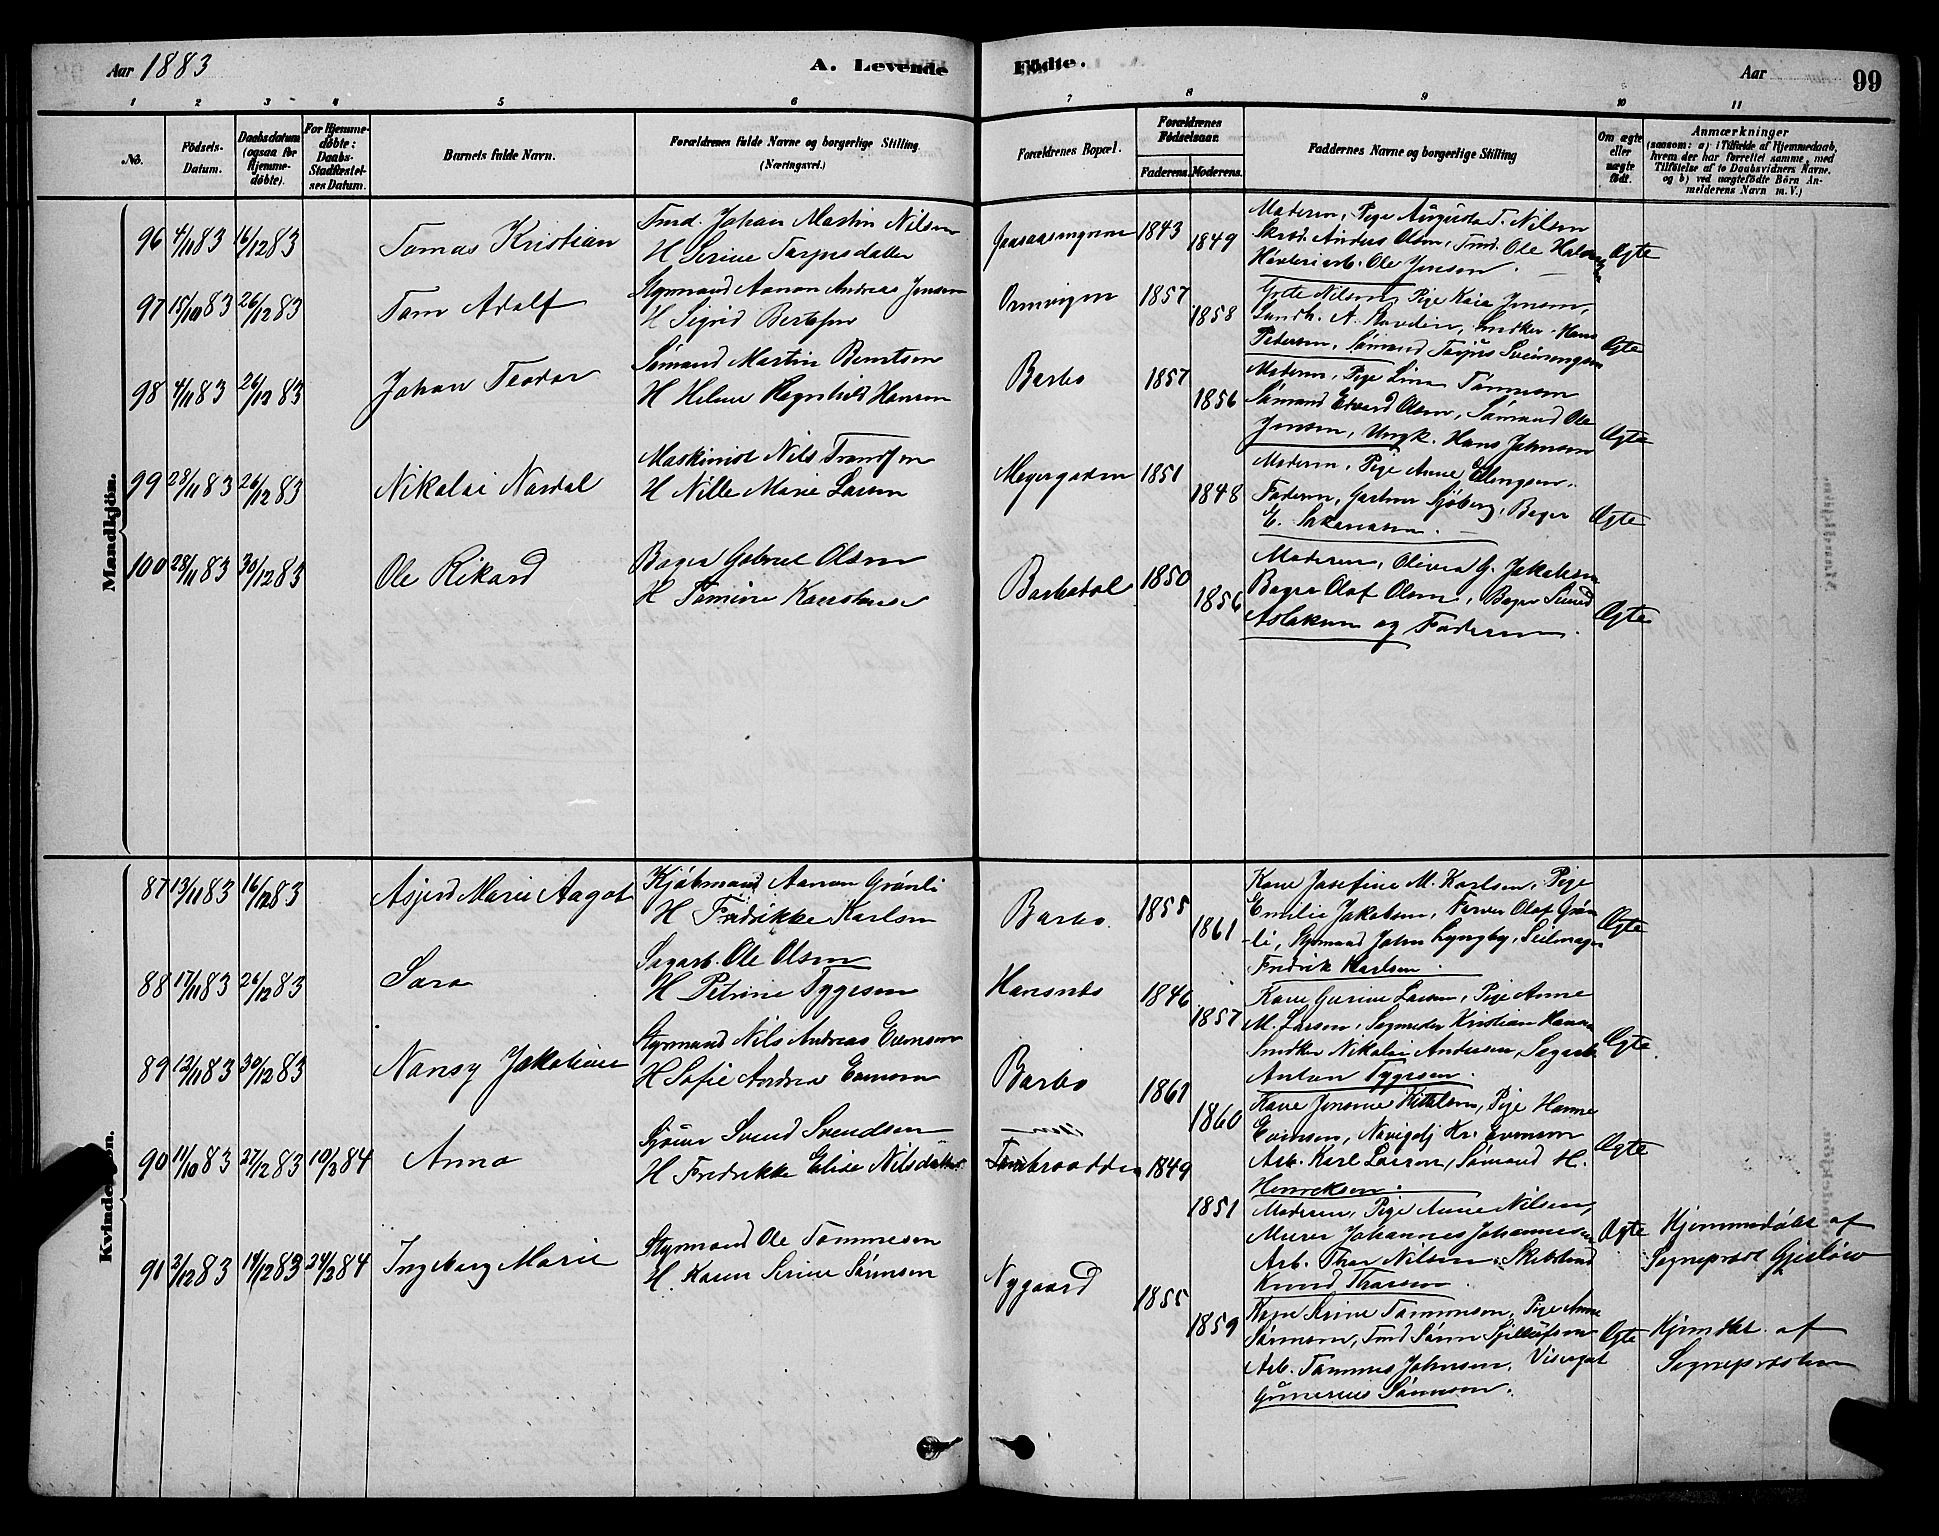 Aar 1883
A. Levende
Fødte.
Aar
99
1 2 3 4 5 6 7 8 9 10 11
No.
Fødsels-
Datum.
Daabsdatum
(ogsaa for
Hjemme-
døbte).
For Hjemme-
døbte:
Daabs-
Stadfæstel-
ses Datum.
Barnets fulde Navn.
Forældrenes fulde Navne og borgerlige Stilling
(Næringsvei.)
Forældrenes Bopæl.
Forældrenes
Fødselsaar.
Faderens. Moderens.
Faddernes Navne og borgerlige Stilling
Om ægte
eller
uægte
født.
Anmærkninger
(saasom: a) i Tilfælde af Hjemmedaab,
hvem der har forrettet samme, med
Tilføielse af to Daabsvidners Navne,
og b) ved uægtefødte Børn An-
melderens Navn m. V.)
Mandkjøn.
96 4/11 83 16/12 83
Tomas Kristian
Tmd. Johan Martin Nilsen
H Serine Tarjusdatter
1843
1849
Moderen, Pige Augusta T. Nilsen
Anders Olsen, Tmd. Ole
Ole Jensen.
Ægte
97 15/10 83 26/12 83
Tom Adolf
Styrmand Aanon Andreas Jensen
H Sigrid Bertofsen
Ormvigen
1857
1858
Grete Nilsen, Pige Kaia Jensen,
Hans
Pedersen, Sømand Tarjus
Ægte
98 4/11 83 26/12 83
Johan Teodor
Sømand Martin Berntsen
H Helene Ragnhild Hansen
Barbo
1857
1856
Moderen, Pige Lina Tommesen
Sømand Edvard Olsen, Sømand Ole
Jensen, Ungk. Hans Johnsen
Ægte
99 28/11 83 26/12 83
Nikolai Nardal
Maskinist Nils Trondsen
H Nille Marie Larsen
Meyergaden
1851
1848
Moderen, Pige Anne Ellingsen.
Faderen, Gartner Sjøberg, Bager
E.
Ægte
100 28/11 83 30/12 83
Ole Rikard
Bager Gabriel Olsen
H Tomine
Barbodal
1850
1856
Moderen, Olivia G. Jakobsen
Bager Olaf Olsen, Bager
Aslaksen og Faderen.
Ægte
Kvindekjøn.
87 13/11 83 16/12 83
Asjerd Marie Aagot
Kjøbmand Aanon Grønli
H Fredrikke Karlsen
Barbo.
1855
1861
Kone Josefine M. Karlsen, Pige
Emilie Jakobsen, Farver Olaf Grøn-
li, Styrmand John Lyngby, Seilmager
Fredrik Karlsen.
Ægte
88 17/11 83 26/12 83
Sara
Sagarb. Ole Olsen
H Petrine Tygesen
Hansnes
1846
1857
Kone Gurine Larsen, Pige Anne
M. Larsen, Kristian Hansen
Snedker Nikolai Andersen, Sagarb.
Anton Tygesen.
Ægte
89 12/11 83 30/12 83
Nansy Jakobine
Styrmand Nils Andreas Evensen
H Sofie Andrea Evensen
Barbo
1861
1860
Kone Jensine Kittelsen, Pige Hanne
Evensen, Navigatj. Kr. Evensen
Arb. Karl Larsen, Sømand H.
Henriksen.
Ægte
90 11/10 83 27/12 83 10/3 84
Anna
Svend Svendsen
H Fredrikke Elise Nilsdatter
1849
1851
Moderen, Pige Anne Nilsen,
Murer Johannes Johannesen
Arb. Thor Nilsen, Skibstmd
Knud Thorsen.
Ægte
Hjemmedøbt af
Sogneprest Gjerløw
91 2/12 83 14/12 83 24/3 84
Ingeborg Marie
Styrmand Ole Tommesen
H. Karen Serine Sørensen
Nygaard
1855
1859
Serine Tommesen, Pige Anne
Sørensen, Tmd Søren
Arb. Tommes Johnsen, Visergut
Gunerius Sørensen.
Ægte
Hjemdbt. af
Sognepresten